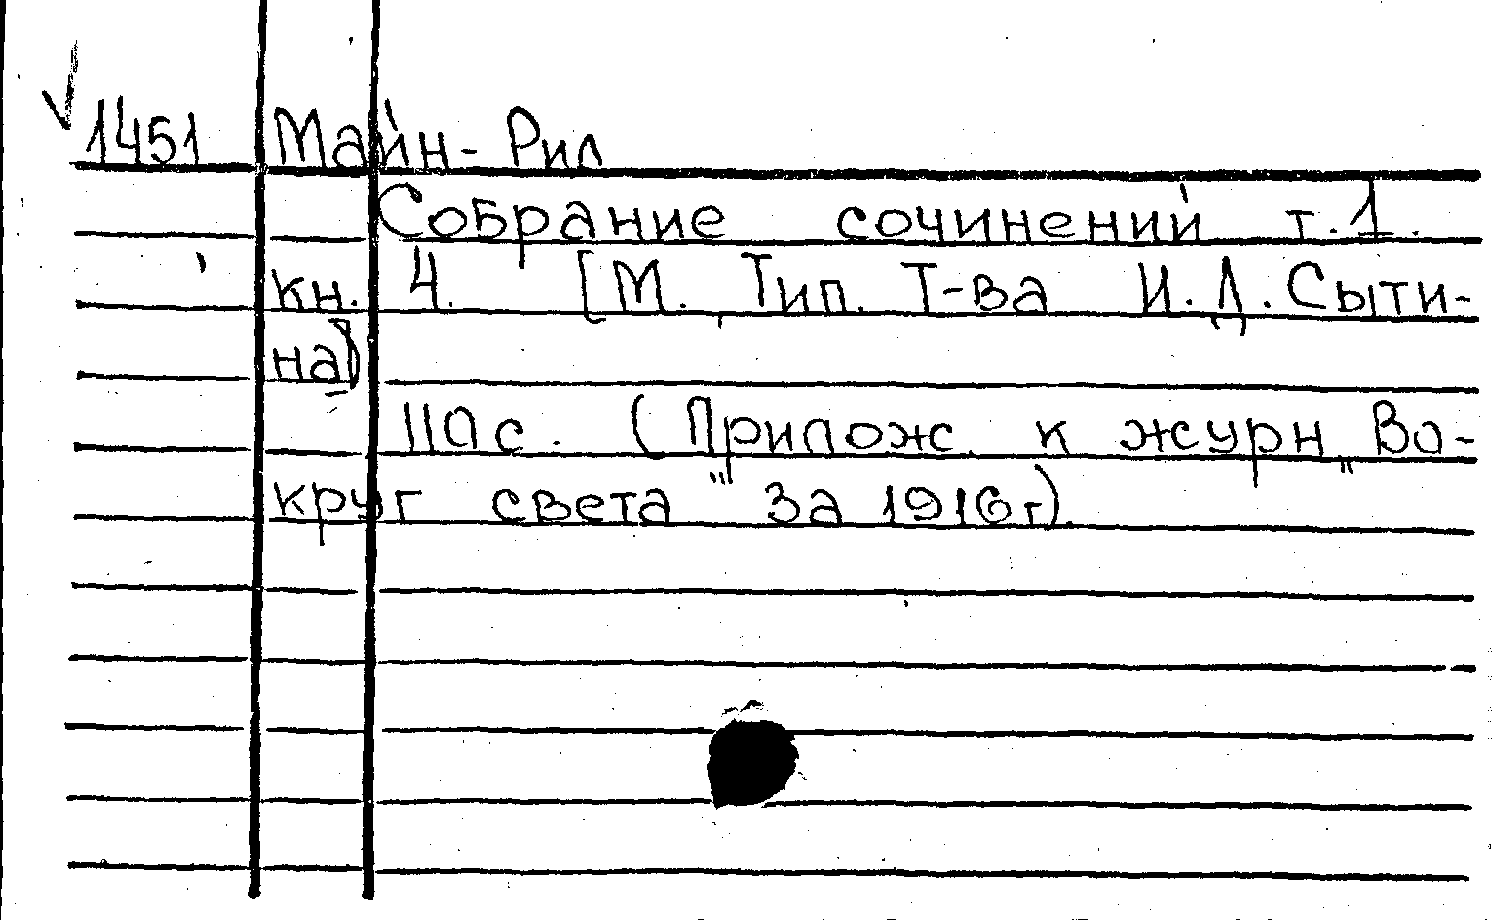 1451 Майн-Рид
Собрание сочинений т.1.
кн. 4. [М. Тип. Т-ва И.Д.Сыти-
на]
110с. (Прилож. к журн „Во-
круг света" за 1916г).